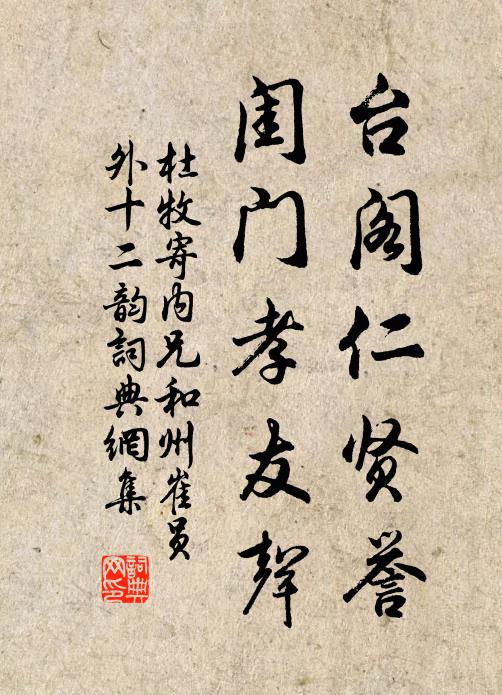 台阁仁贤誉
闺门孝友聲
杜牧寄内兄和州崔员
外十二韵詞典網集
詞典
网印